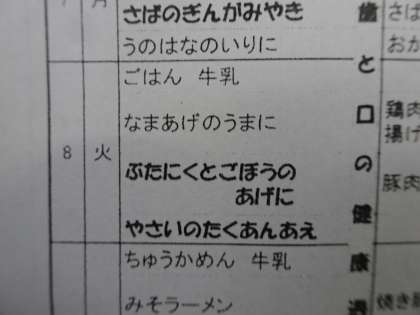 月
さばのぎんがみやき
うのはなのいりに
ごはん 牛乳
なまあげのうまに
8 火
ぶたにくとごぼうの
あげに
やさいのたくあんあえ
ちゅうかめん 牛乳
みそラーメン
歯と口の健康週
さば
おか
鶏肉
揚げ
豚肉
焼き